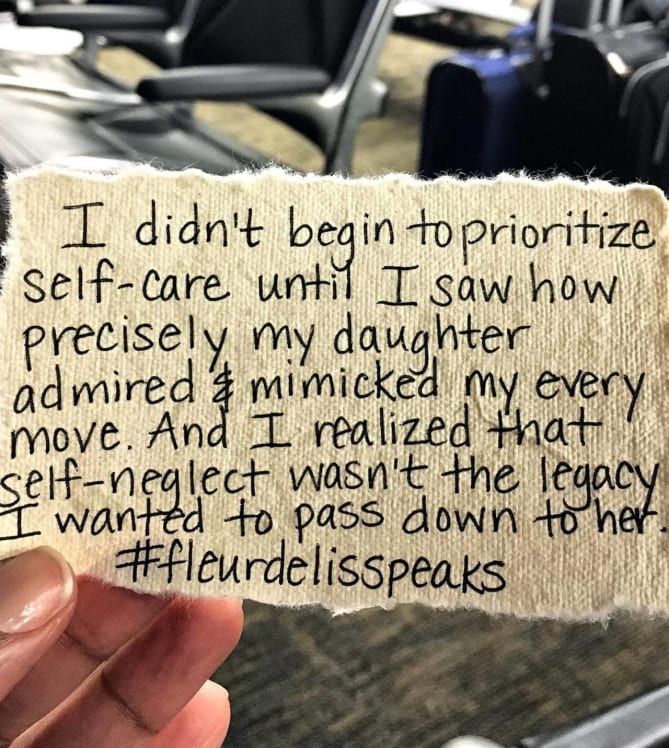 I didn't begin to prioritize
self-care until I saw how
precisely my daughter
admired & mimicked my every
move. And I realized that
self-neglect wasn't the legacy
I wanted to pass down to her.
#fleurdelisspeaks